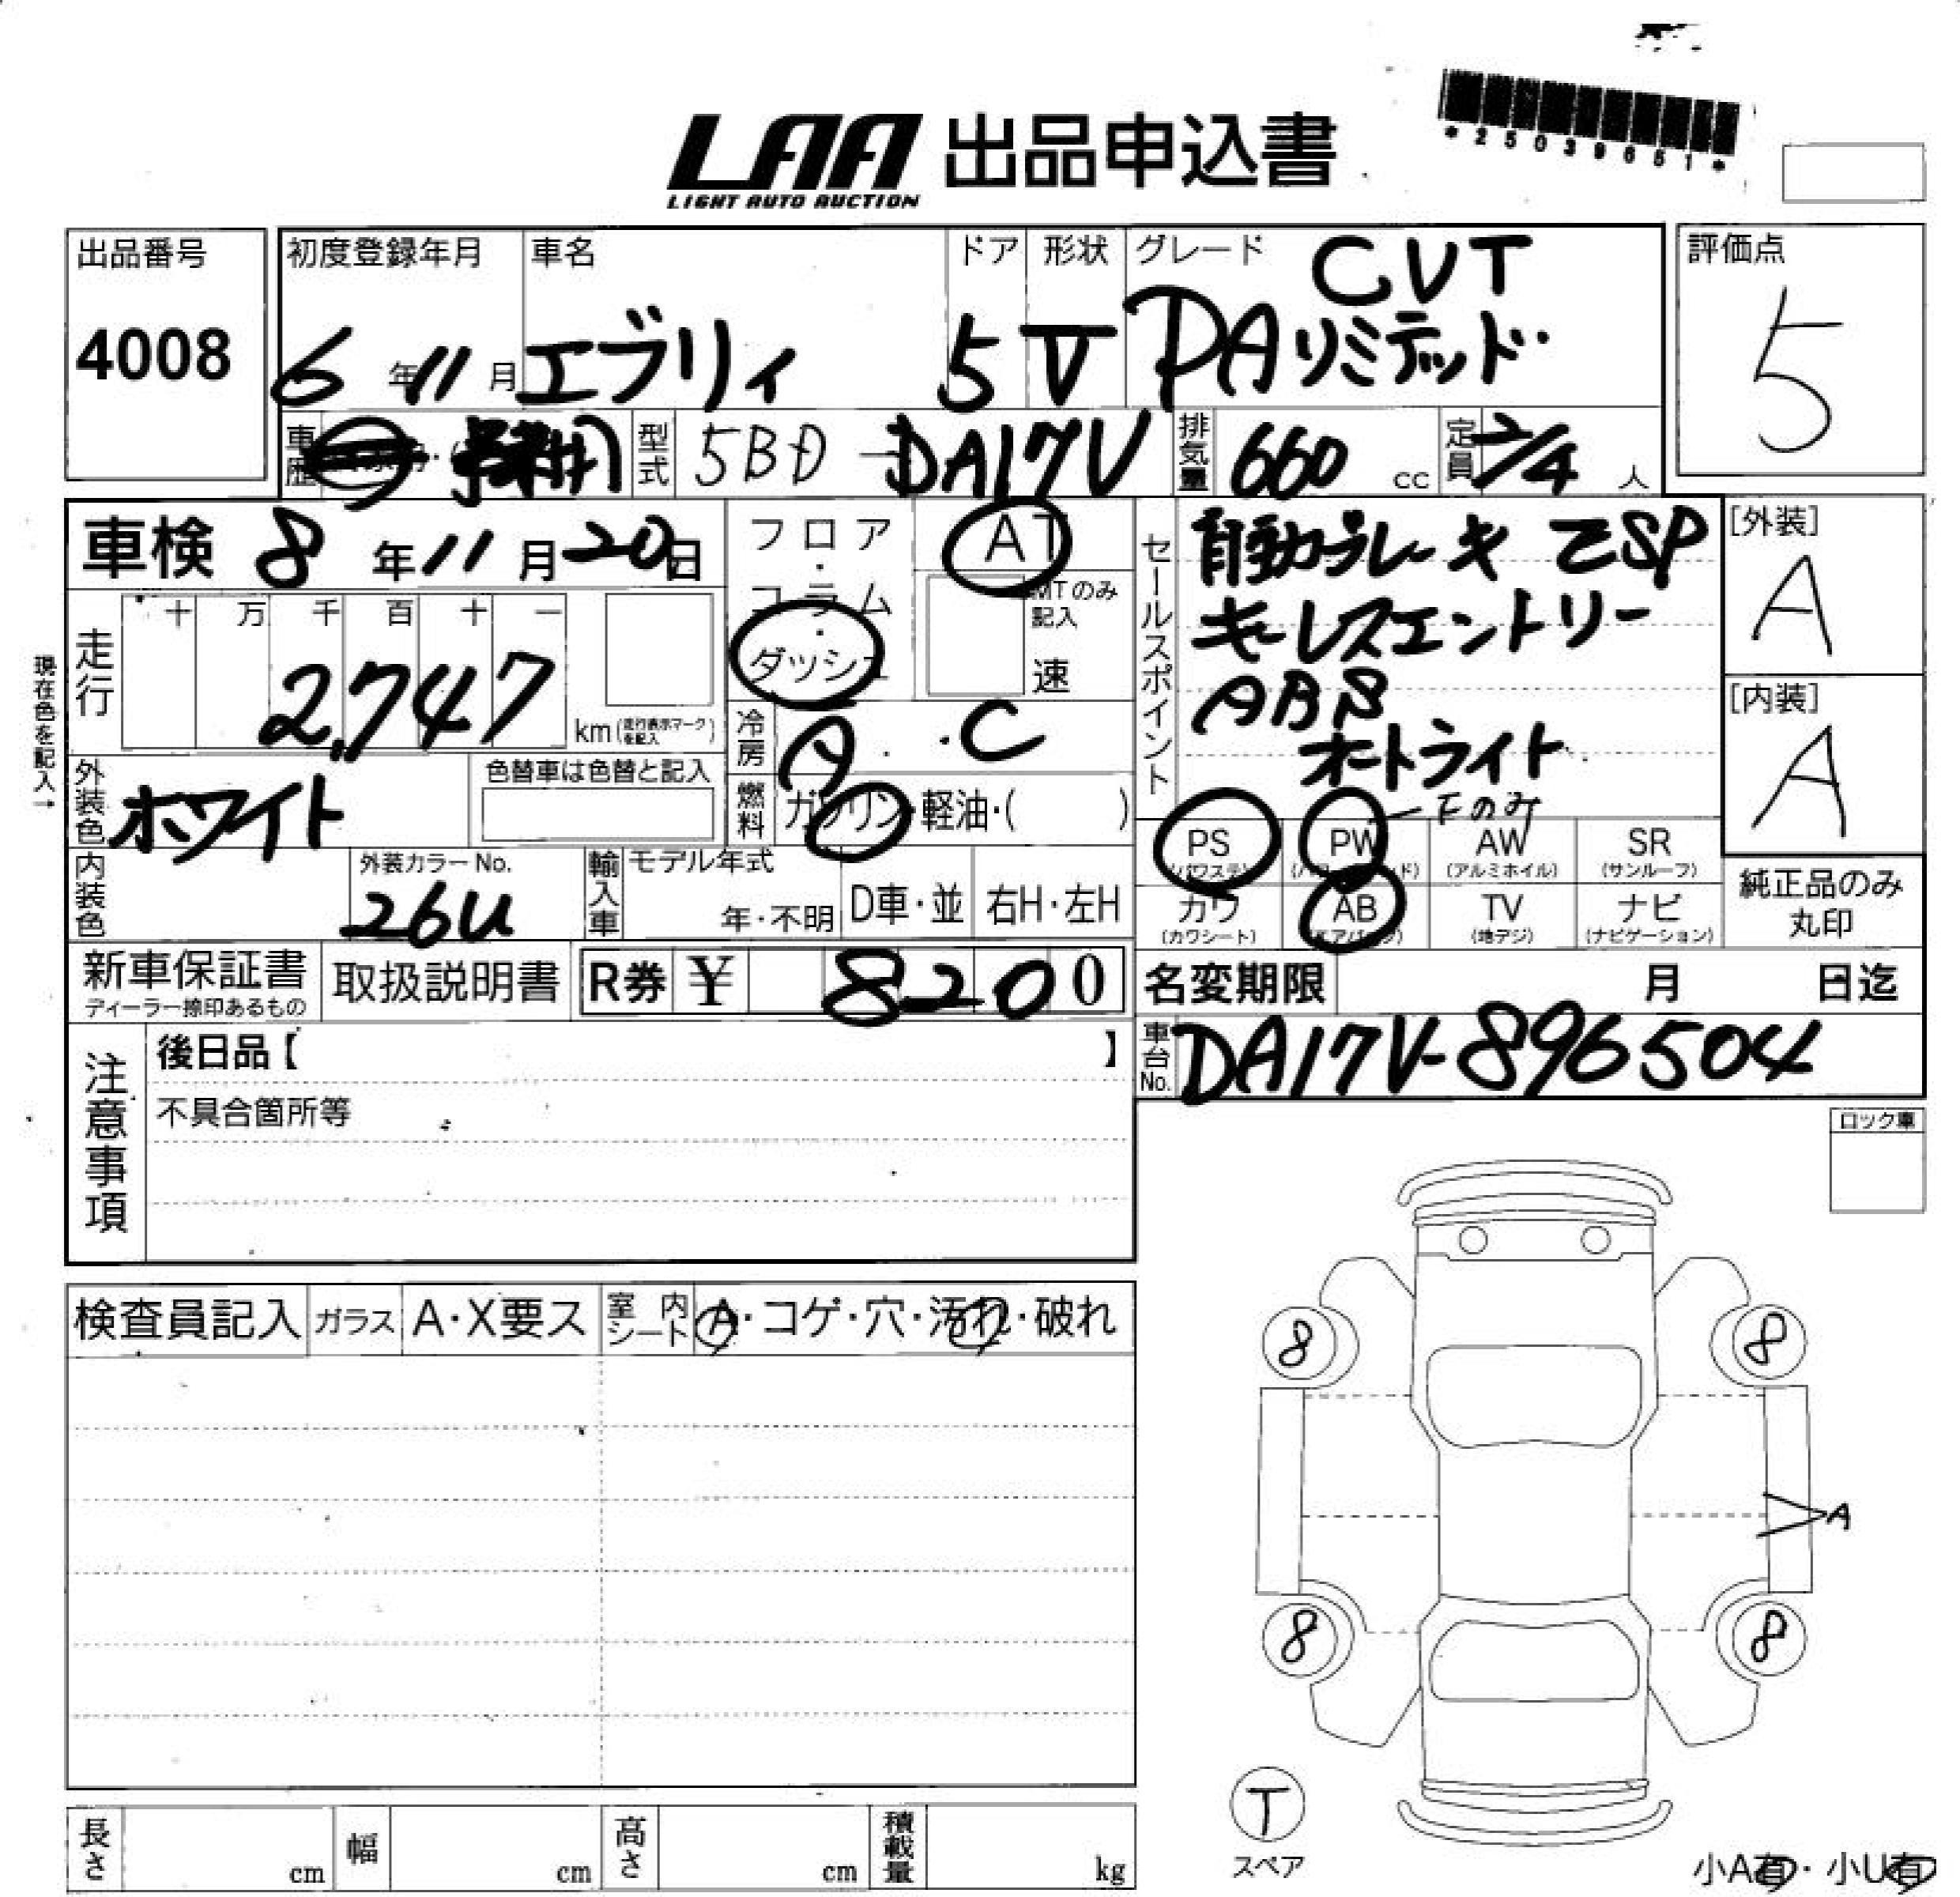 *25039651*
LAA 出品申込書
LIGHT AUTO AUCTION
出品番号
4008
初度登録年月
6年11月
車名
エブリィ
ドア
5
形状
V
グレード
CVT
PAリミテッド
評価点
5
車歴
型式
5BD-DA17V
排気量
660 cc
定員
2/4 人
車検 8年11月20日
走行
十 万 千 百 十 一
2,747
km(走行表示マークを記入)
現在色を記入→
外装色
ホワイト
色替車は色替と記入
内装色
外装カラーNo.
26U
フロア・コラム・ダッシュ
AT
MTのみ記入
速
冷房
A・C
燃料
ガソリン・軽油・( )
輸入車
モデル年式
年・不明
D車・並
右H・左H
セールスポイント
自動ブレーキ ESP
キーレスエントリー
ABS
オートライト
Fのみ
PS
(パワステ)
PW
AW
(アルミホイル)
SR
(サンルーフ)
カワ
(カワシート)
AB
(エアバッグ)
TV
(地デジ)
ナビ
(ナビゲーション)
[外装]
A
[内装]
A
純正品のみ
丸印
新車保証書
ディーラー捺印あるもの
取扱説明書
R券 ¥ 8200
名変期限 月 日迄
車台No.
DA17V-896504
注意事項
後日品【 】
不具合箇所等
ロック車
検査員記入
ガラス
A・X要ス
室内シート
A・コゲ・穴・汚れ・破れ
8
8
A
8
8
T
スペア
長さ cm
幅 cm
高さ cm
積載量 kg
小A有・小U有